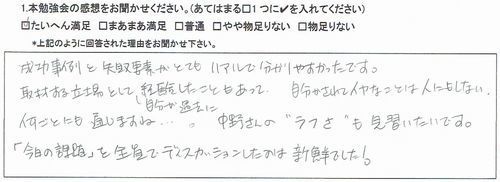 1.本勉強会の感想をお聞かせください。(あてはまる□1つに✔を入れてください)
☑たいへん満足 □まあまあ満足 □普通 □やや物足りない □物足りない
*上記のように回答された理由をお聞かせ下さい。
成功事例と失敗要素がとてもリアルで分かりやすかったです。
取材する立場として経験したこともあって、自分がされてイヤなことは人にもしない。
自分が過去に
何ごとにも通しますね…。中野さんの"ラフさ"も見習いたいです。
「今日の課題」を全員でディスカッションしたのは新鮮でした!